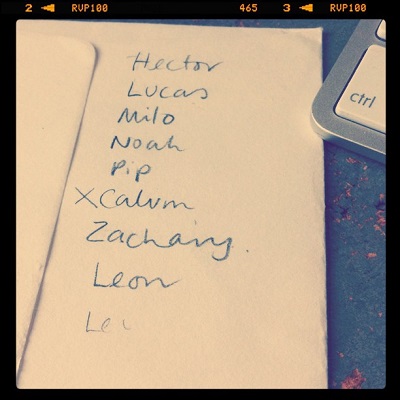 2 RVP100 465 3 RVP100
ctrl
Hector
Lucas
Milo
Noah
Pip
XCalum
Zachary.
Leon
Lei